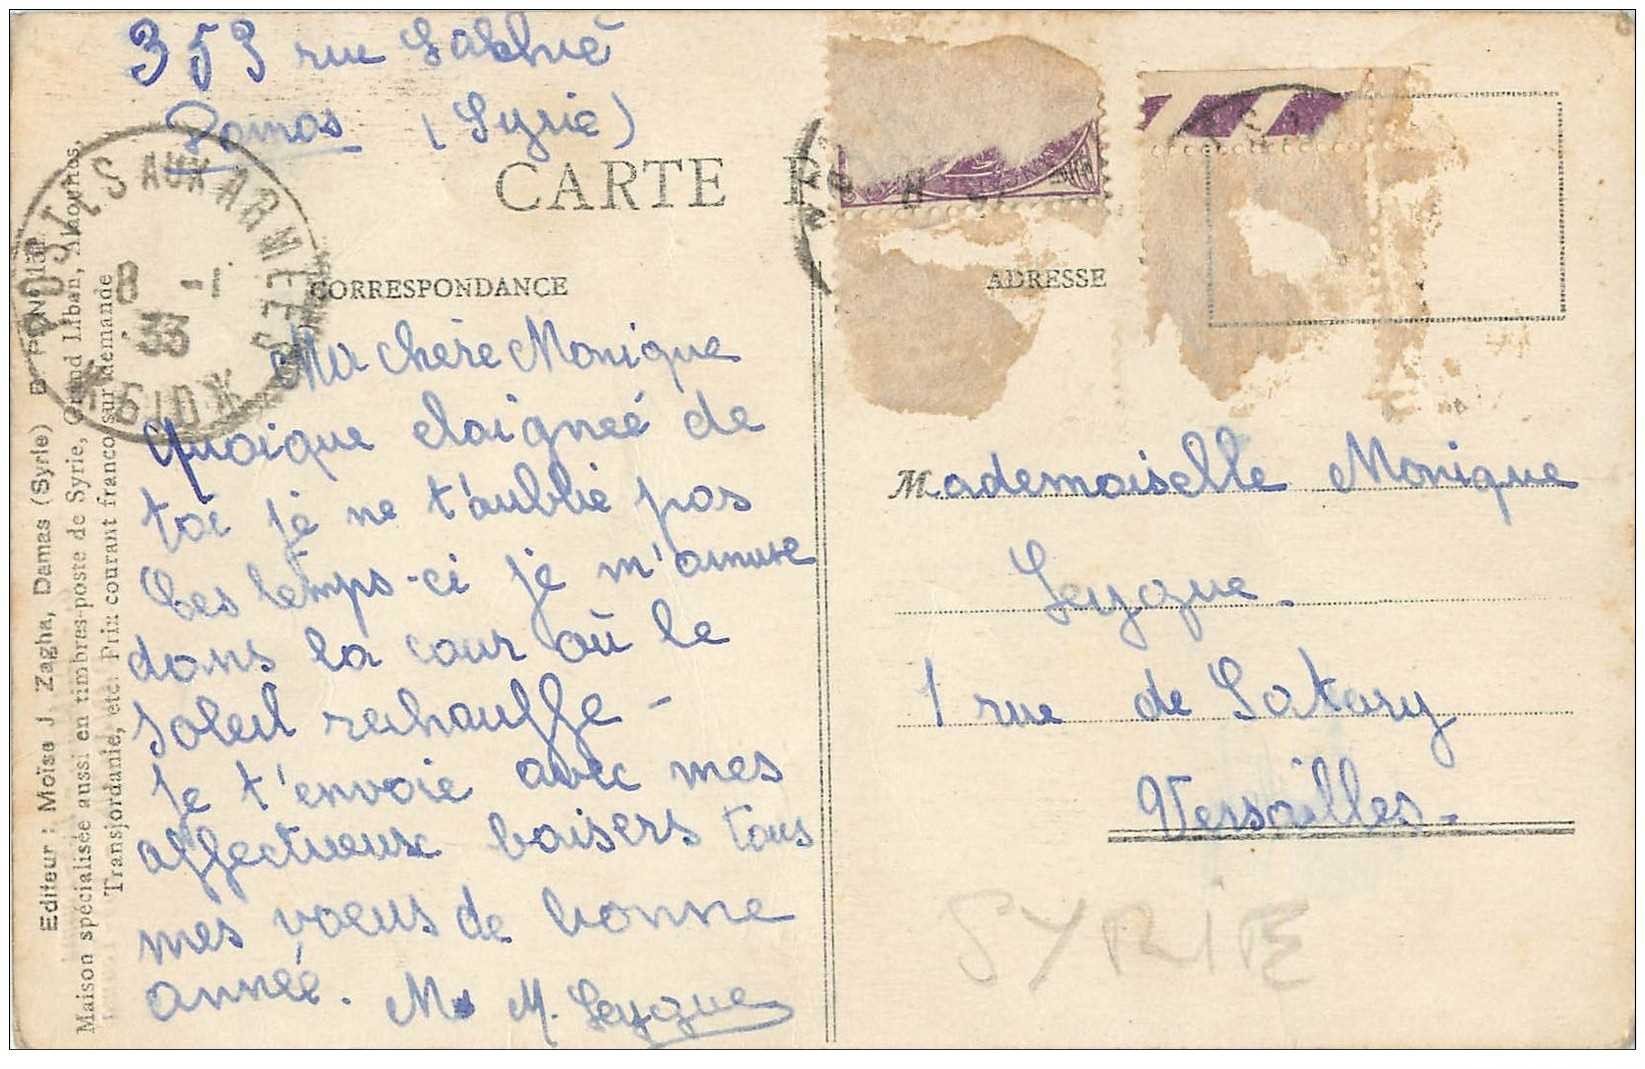 353 rue Salhié
Damas (Syrie)
CARTE
POSTES AUX ARMEES
8 -1
33
* 619 *
CORRESPONDANCE
ADRESSE
Ma chère Monique
Quoique eloigneé de
toi je ne t'oublie pas
Ces temps-ci je m'amuse
dans la cour où le
soleil rechauffe -
Je t'envoie avec mes
affectueux baisers tous
mes voeus de bonne
année. M. Leygue
Mademoiselle Monique
Leygue.
1 rue de Satory
Versailles -
SYRIE
Editeur : Moïse J. Zagha, Damas (Syrie)
Maison spécialisée aussi en timbres-poste de Syrie, Grand Liban, Alaouites,
Transjordanie, etc. Prix courant franco sur demande